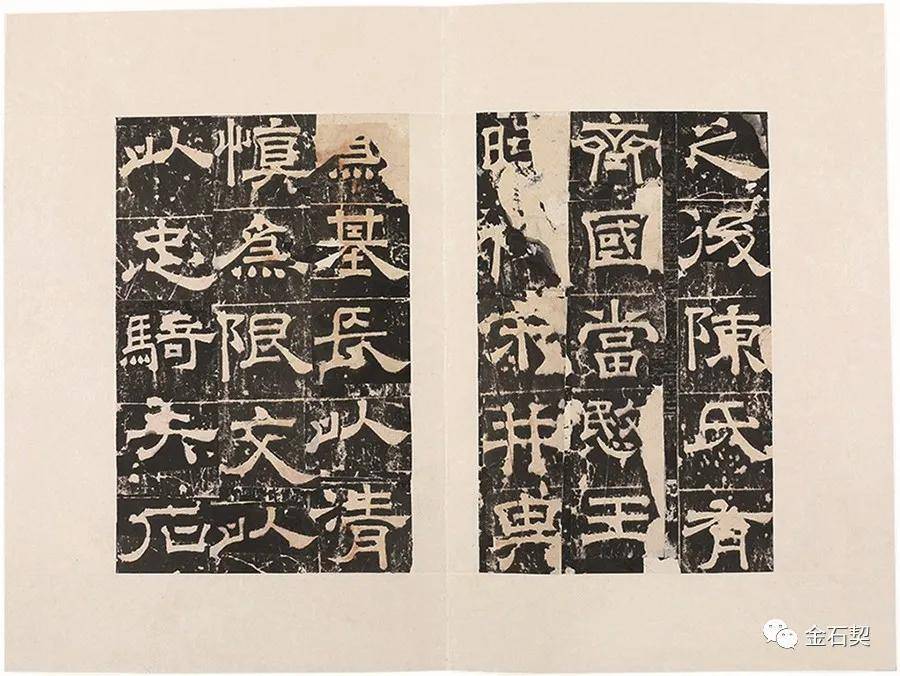 之後陳氏有
齊國當愍王
時宋并
為基長以清
慎為限文以
以忠騎矢石
金石契